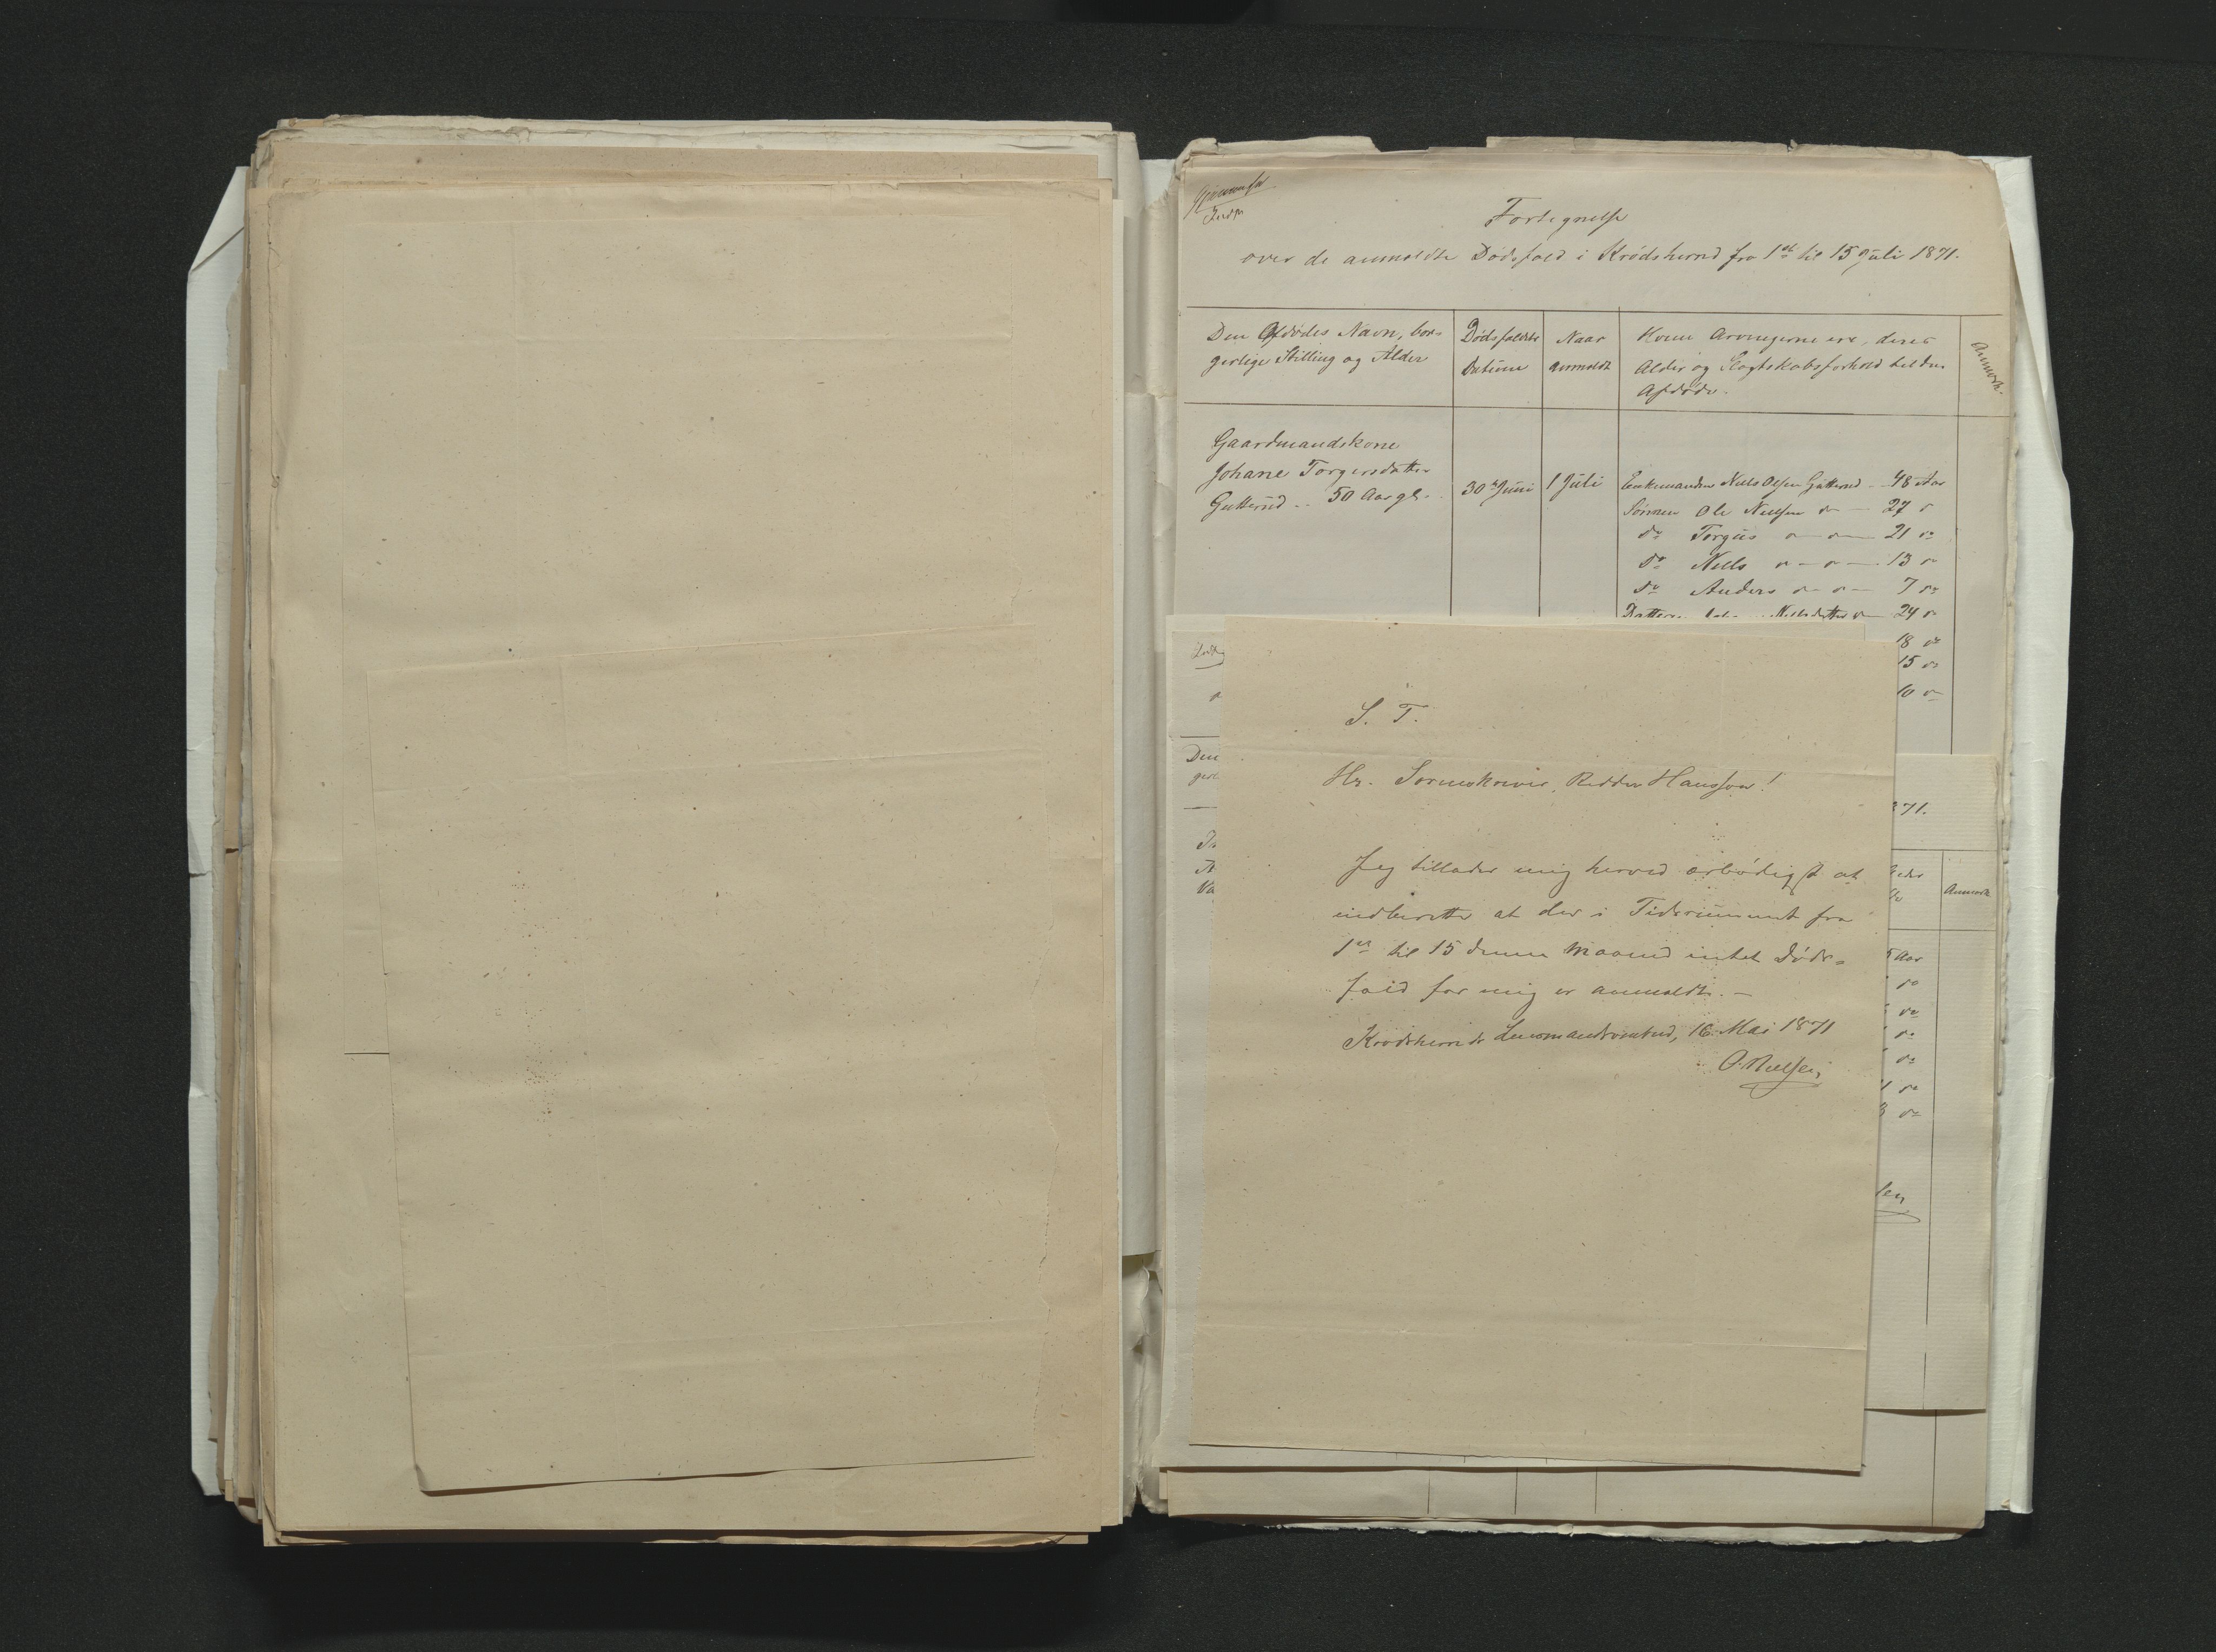 Fortegnelse
over de anmeldte Dødsfald i Krødsherred fra 1ste til 15 Juli 1871.
Den Afdødes Navn, bor-
gerlige Stilling og Alder
Dødsfaldets
Datum
Naar
anmeldt
Hvem Arvingerne ere, deres
Alder og Slægtskabsforhold til den
Afdøde.
Anmærk.
Gaardmandskone
Johane Torgersdatter
Gutterud .. 50 Aar gl.
30te Juni
1 Juli
Enkemanden Niels Olsen Gutterud 48 Aar
Sønnen Ole Nielsen do — 27 do
do Torgus do — do — 21 do
do Niels do — do — 13 do
do Anders do — do — 7 do
Datteren Nielsdatter do — 24 do
18 do
15 do
10 do
S. T.
Hr. Sorenskriver, Ridder Hansson!
Jeg tillader mig herved ærbødigst at
indberette at der i Tidsrummet fra
1ste til 15 denne Maaned intet Døds-
fald for mig er anmeldt. —
Krødsherreds Lensmandsombud, 16 Mai 1871
O. Nielsen
Den
871.
Anmærk
5 Aar
do
do
do
do
1 do
do
sen